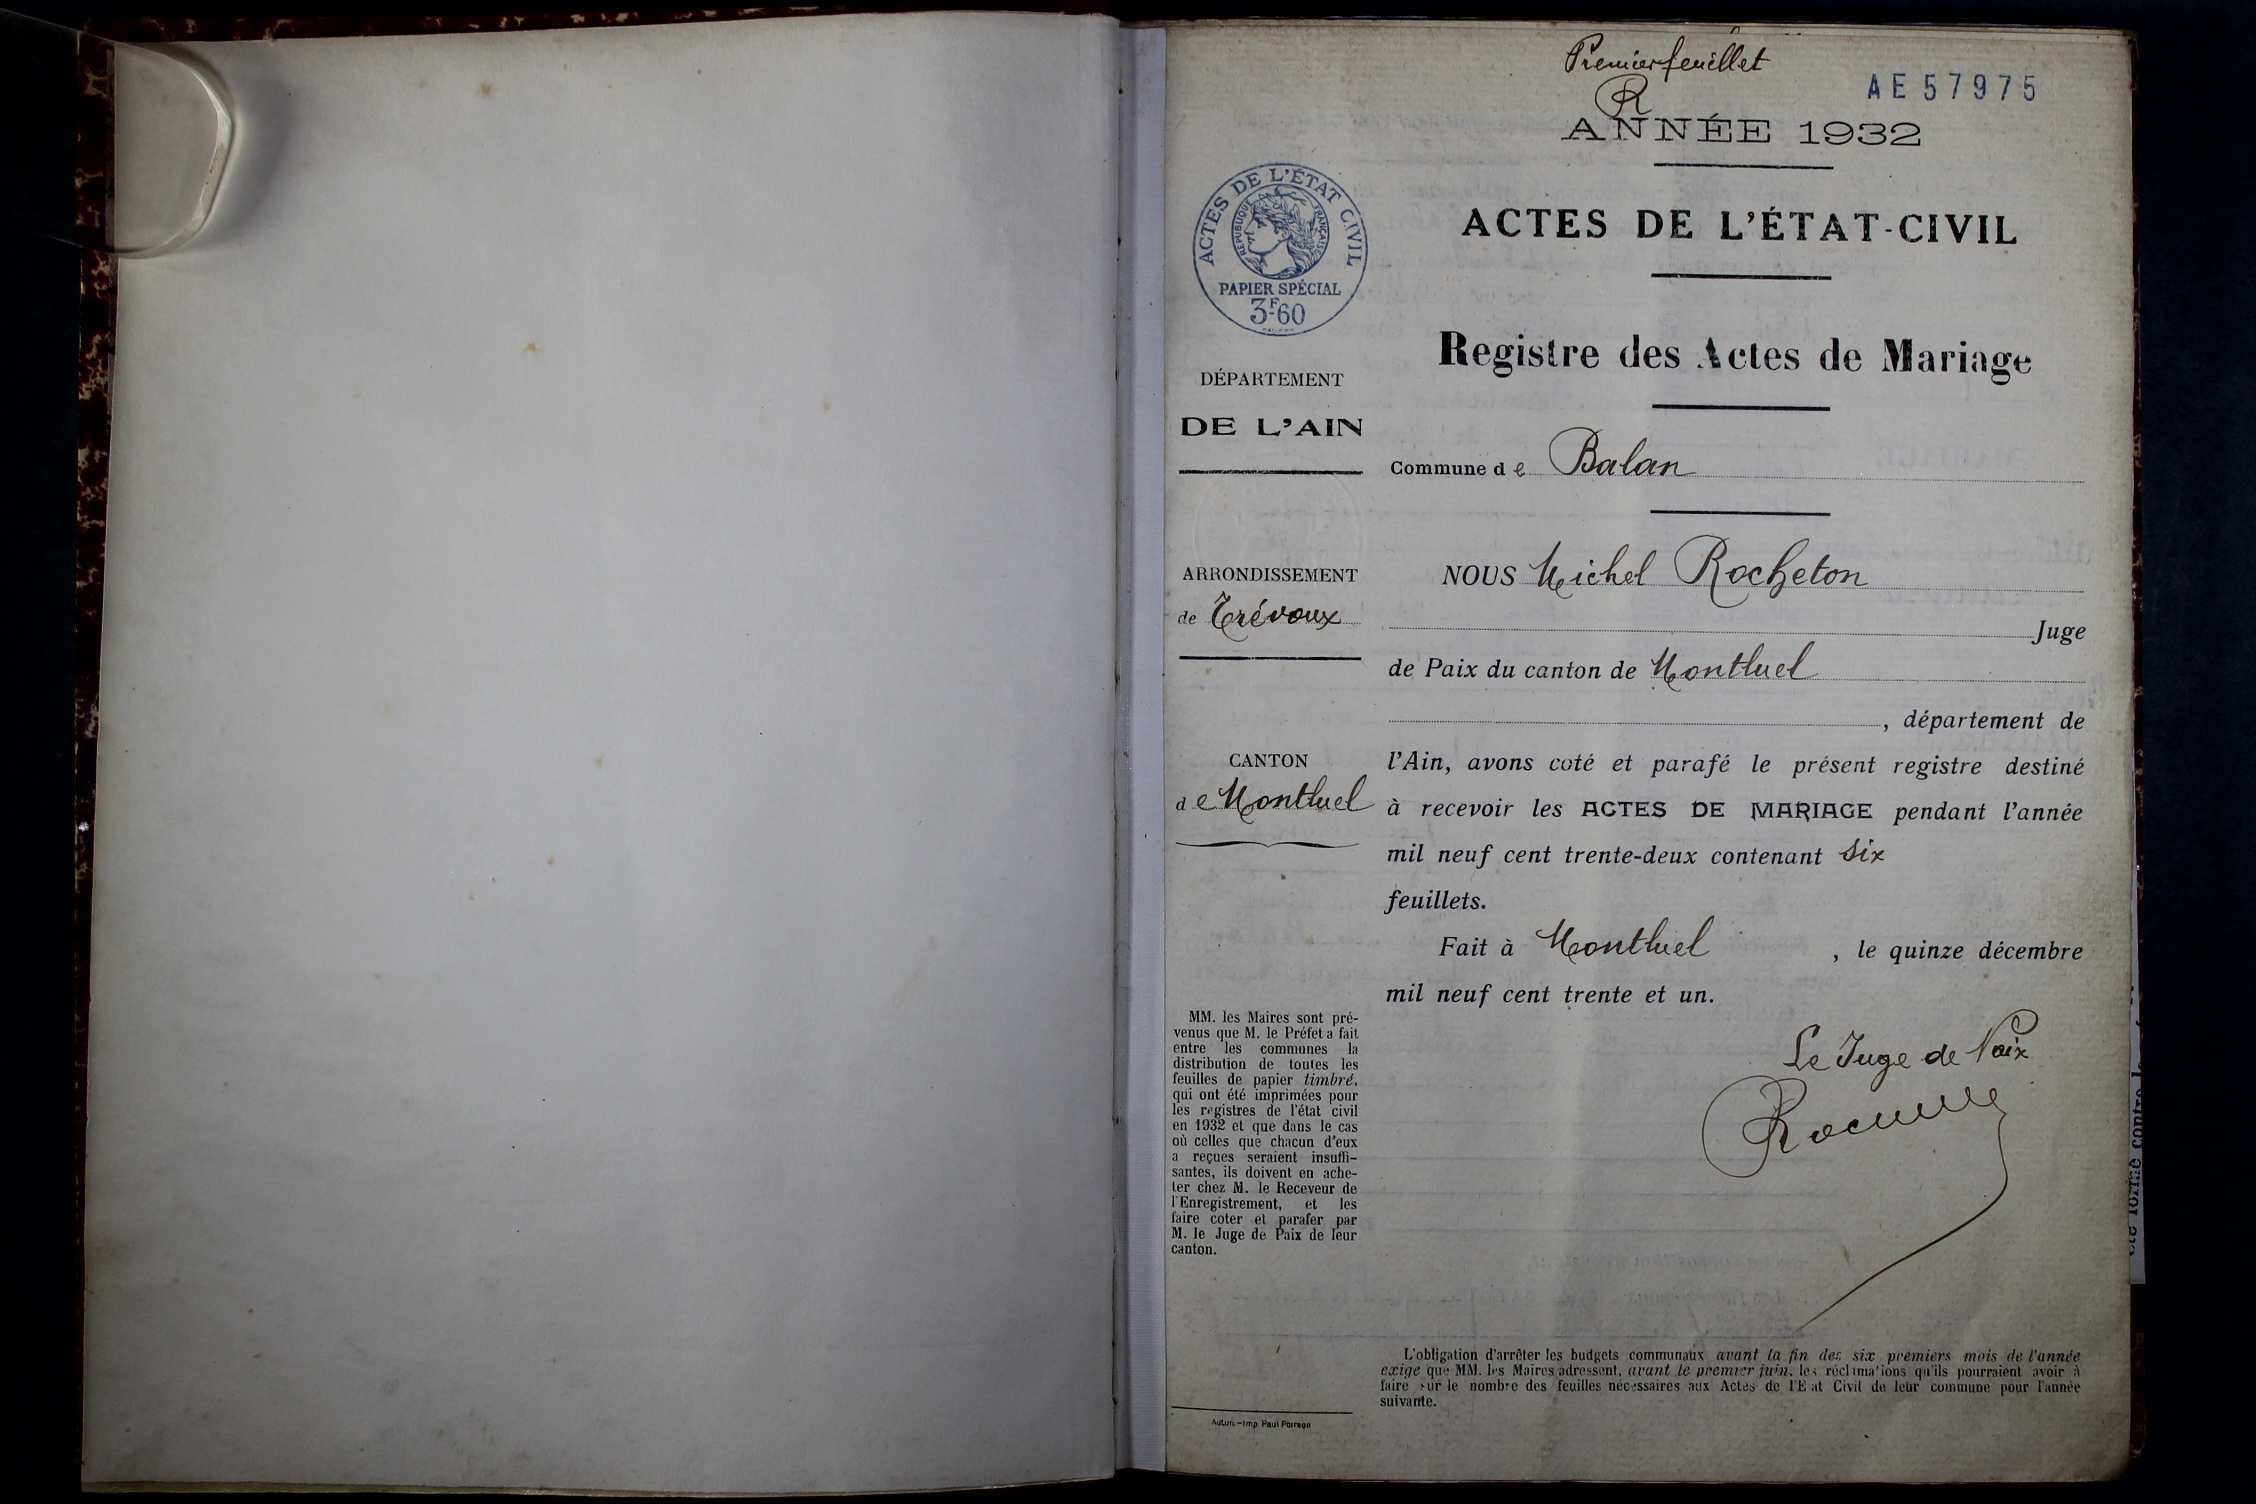 Premier feuillet
R
AE 57975
ANNÉE 1932
ACTES DE L'ÉTAT CIVIL
RÉPUBLIQUE FRANÇAISE
PAPIER SPÉCIAL
3F60
ACTES DE L'ÉTAT-CIVIL
Registre des Actes de Mariage
DÉPARTEMENT
DE L'AIN
Commune de Balan
ARRONDISSEMENT
de Trévoux
CANTON
de Montluel
NOUS Michel Rocheton
Juge
de Paix du canton de Montluel
, département de
l'Ain, avons coté et parafé le présent registre destiné
à recevoir les ACTES DE MARIAGE pendant l'année
mil neuf cent trente-deux contenant six
feuillets.
Fait à Montluel , le quinze décembre
mil neuf cent trente et un.
Le Juge de Paix
MM. les Maires sont pré-
venus que M. le Préfet a fait
entre les communes la
distribution de toutes les
feuilles de papier timbré,
qui ont été imprimées pour
les registres de l'état civil
en 1932 et que dans le cas
où celles que chacun d'eux
a reçues seraient insuffi-
santes, ils doivent en ache-
ter chez M. le Receveur de
l'Enregistrement, et les
faire coter et parafer par
M. le Juge de Paix de leur
canton.
L'obligation d'arrêter les budgets communaux avant la fin des six premiers mois de l'année
exige que MM. les Maires adressent, avant le premier juin, les réclamations qu'ils pourraient avoir à
faire sur le nombre des feuilles nécessaires aux Actes de l'Etat Civil de leur commune pour l'année
suivante.
Autun. - Imp. Paul